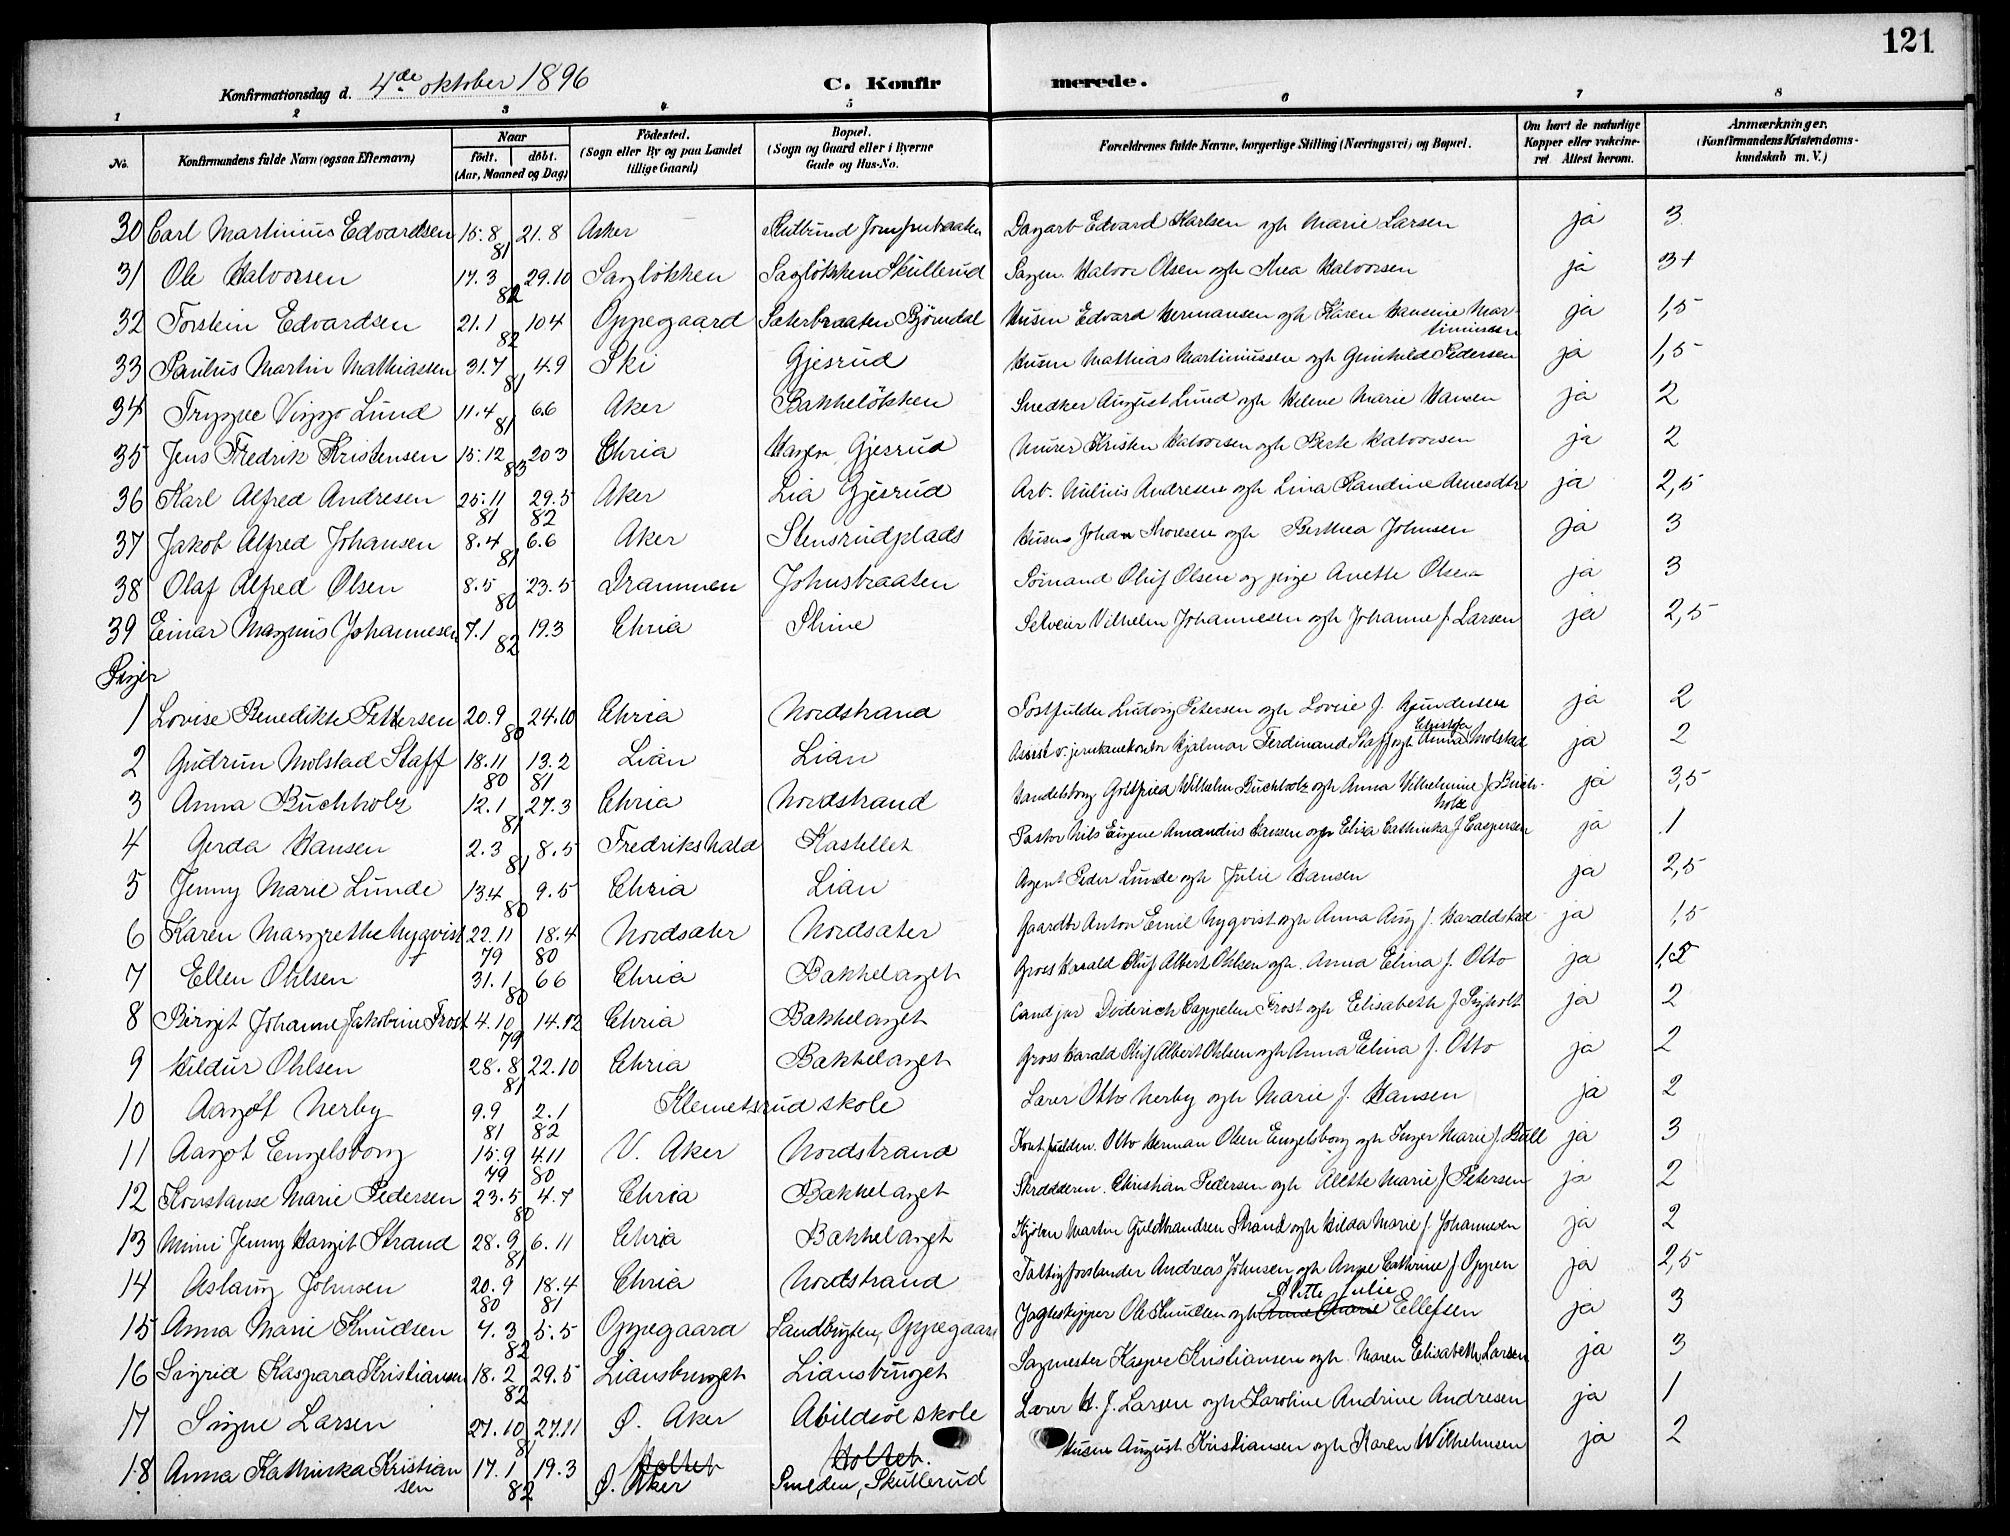 121
Konfirmationsdag d. 4de oktober 1896 C. Konfirmerede.
1 2 3 4 5 6 7 8
No. Konfirmandens fulde Navn (ogsaa Efternavn) Naar født. døbt. (Aar, Maaned og Dag) Fødested. (Sogn eller By og paa Landet tillige Gaard) Bopæl. (Sogn og Gaard eller i Byerne Gade og Hus-No. Forældrenes fulde Navne, borgerlige Stilling (Næringsvei) og Bopæl. Om havt de naturlige Kopper eller vakcineret Attest herom. Anmærkninger. (Konfirmandens Kristendomskundskab m. V.)
30 Carl Martinius Edvardsen 15.8 81 21.8 Aker Dagarb Edvard Karlsen ogh Marie Larsen ja 3
31 Ole Halvorsen 17.3 82 29.10 Sagløkken Sagløkken Skullerud Sagm. Halvor Olsen ogh Thea Halvorsen ja 3+
32 Torstein Edvardsen 21.1 82 10.4 Oppegaard Sæterbraaten Bjørndal Husm Edvard Hermansen ogh Karen Hansine Martiniussen ja 1,5
33 Paulus Martin Mathiassen 31.7 81 4.9 Ski Gjesrud Husm Mathias Martiniussen ogh Gunhild Pedersen ja 1,5
34 Trygve Viggo Lund 11.4 81 6.6 Aker Bakkeløkken Snedker August Lund ogh Helene Marie Hansen ja 2
35 Jens Fredrik Kristensen 15.12 83 20.3 Chria Hagen Gjesrud Murer Kristen Halvorsen ogh Berte Halvorsen ja 2
36 Karl Alfred Andresen 25.11 81 29.5 82 Aker Lia Gjesrud Arb. Julius Andresen ogh Lina Randine Arnesdtr ja 2,5
37 Jakob Alfred Johansen 8.4 81 6.6 Aker Stensrudplads Husm Johan Thoresen ogh Berthea Johnsen ja 3
38 Olaf Alfred Olsen 8.5 80 23.5 Drammen Johnsbraaten Sømand Oluf Olsen og pige Anette Olsen ja 3
39 Einar Magnus Johannesen 7.1 82 19.3 Chria Skine Selveier Vilhelm Johannesen ogh Johanne f. Larsen ja 2,5
Piger
1 Lovise Benedikte Pettersen 20.9 80 24.10 Chria Nordstrand Postfuldm Ludvig Petersen ogh Lovise f. Gundersen ja 2
2 Gudrun Molstad Staff 18.11 80 13.2 81 Lian Lian Assist v. jernbanekontor Hjalmar Ferdinand Staff ogh Anna Molstad ja 2
3 Anna Buchholz 12.1 81 27.3 Chria Nordstrand Handelsborg Gottfried Wilhelm Buchholz ogh Anna Vilhelmine f Buchholz ja 3,5
4 Gerda Hansen 2.3 81 8.5 Fredrikshald Kastellet Pastor Nils Eugene Amandus Hansen ogh Elisa Cathinka f Caspersen ja 1
5 Jenny Marie Lunde 13.4 80 9.5 Chria Lian Agent Peder Lunde ogh Julie Hansen ja 2,5
6 Karen Margrethe Nyqvist 22.11 79 18.4 80 Nordsæter Nordsæter Gaardbr Anton Emil Nyqvist ogh Anna Aug f. Haraldstad ja 1,5
7 Ellen Ohlsen 31.1 80 6.6 Chria Bækkelaget Gross Harald Oluf Albert Ohlsen ogh. Anna Elina f. Otto ja 1,5
8 Birgit Johanne Jakobine Frost 4.10 79 14.12 Chria Bækkelaget Cand jur Diderich Cappelen Frost ogh Elisabeth f Sigholt ja 2
9 Hildur Ohlsen 28.8 81 22.10 Chria Bækkelaget Gross Harald Oluf Albert Ohlsen ogh Anna Elina f. Otto ja 2
10 Aagot Nerby 9.9 81 2.1 82 Klemetsrud skole Lærer Otto Nerby ogh Marie f. Hansen ja 2
11 Aagot Engelsborg 15.9 79 4.11 80 V. Aker Nordstrand Kont fuldm. Otto Herman Olsen Engelsborg ogh Inger Marie f. Bull ja 3
12 Konstanse Marie Pedersen 23.5 80 4.7 Chria Bækkelaget Skrædderm. Christian Pedersen ogh Alette Marie f Petersen ja 2
13 Mimi Jenny Margit Strand 28.9 81 6.11 Chria Bækkelaget Kjøbm Martin Guldbrandsen Strand ogh Hilda Marie f. Johannesen ja 2
14 Aslaug Johnsen 20.9 80 18.4 81 Chria Nordstrand Fattigforstander Andreas Johnsen ogh Anne Cathrine f Oppen ja 2,5
15 Anna Marie Knudsen 7.3 82 5.5 Oppegaard Sandbugten, Oppegaard Jagteskipper Ole Knudsen ogh Anne Marie Alette Julie Ellefsen ja 3
16 Sigrid Kaspara Kristiansen 18.2 82 29.5 Liansbruget Liansbruget Sagmester Kasper Kristiansen ogh. Maren Elisabeth Larsen ja 3
17 Signe Larsen 27.10 81 27.11 Ø. Aker Abildsøe skole Lærer H. J. Larsen ogh Karoline Andrine Andresen ja 1
18 Anna Kathinka Kristiansen 17.1 82 19.3 Holtet Ø. Aker Holtet. Smeden, Skullerud Husm August Kristiansen ogh Karen Wilhelmsen ja 2